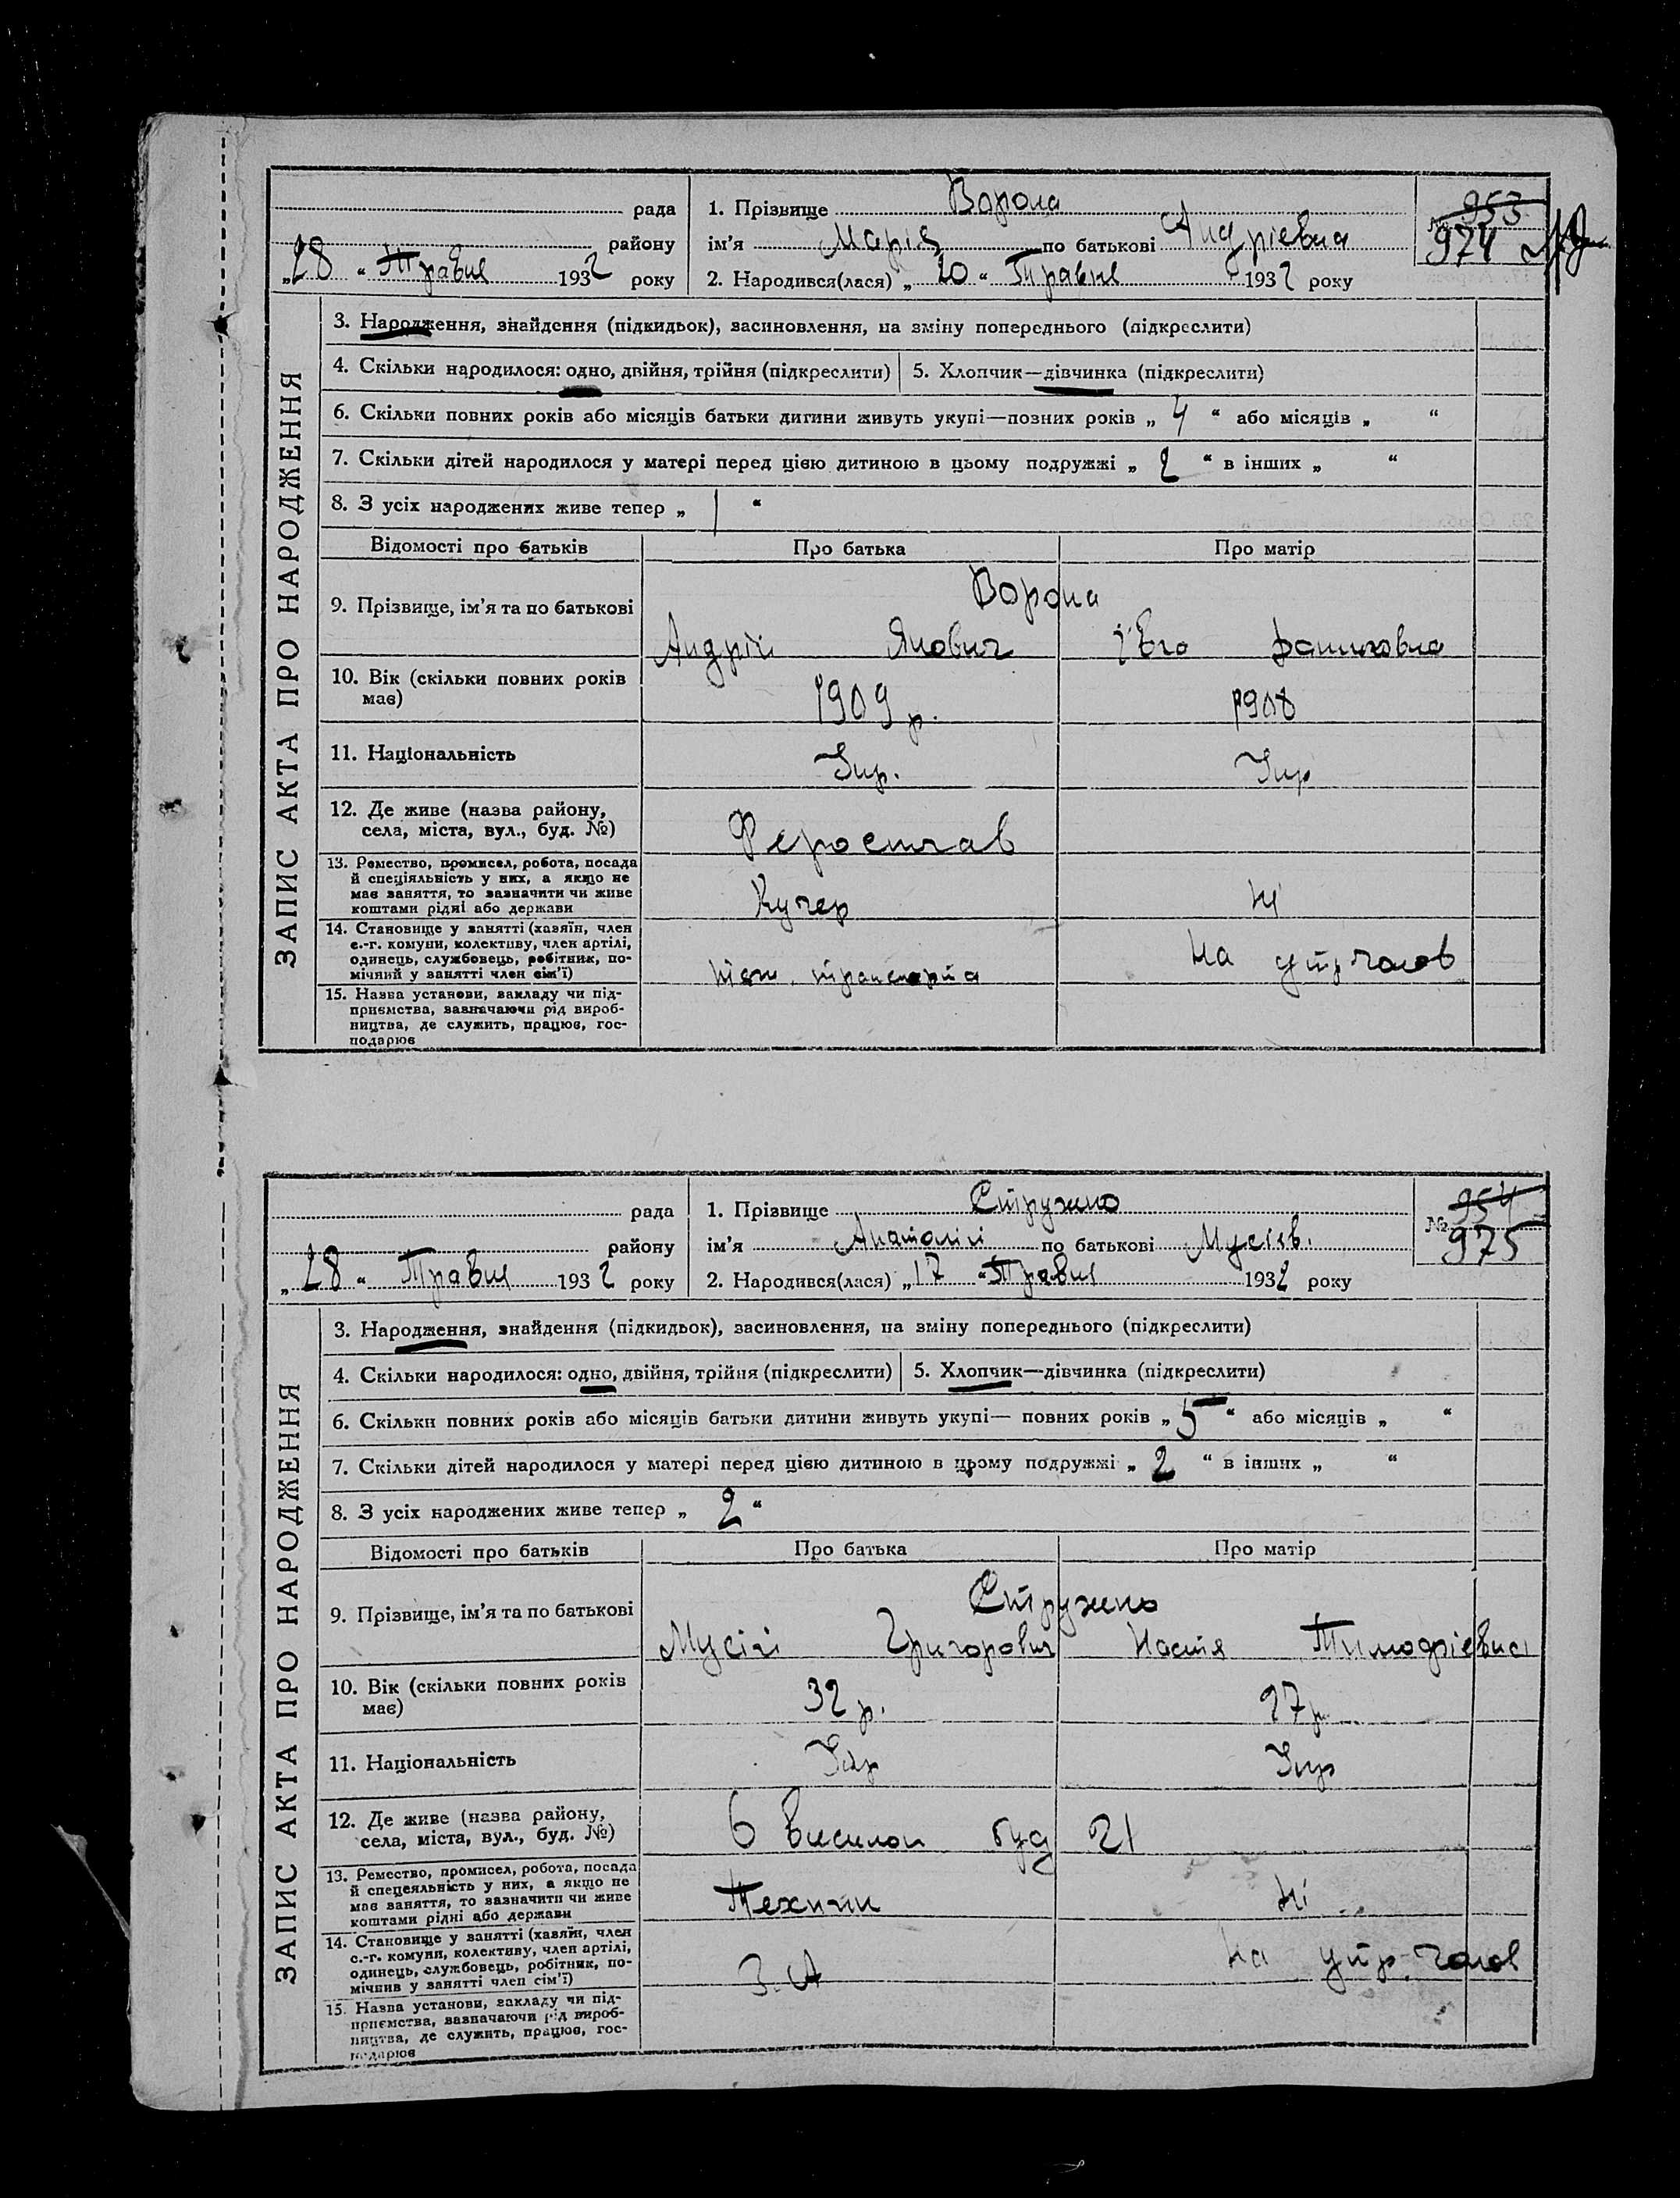 рада
1. Прізвище Ворона
953
району
ім'я Марія по батькові Андріевна
№ 974
„28“ Травня 1932 року
2. Народився(лася) „20“ Травня 1932 року
ЗАПИС АКТА ПРО НАРОДЖЕННЯ
3. Народження, знайдення (підкидьок), засиновлення, на зміну попереднього (підкреслити)
4. Скільки народилося: одно, двійня, трійня (підкреслити)
5. Хлопчик—дівчинка (підкреслити)
6. Скільки повних років або місяців батьки дитини живуть укупі—повних років „4“ або місяців „ “
7. Скільки дітей народилося у матері перед цією дитиною в цьому подружжі „2“ в інших „ “
8. З усіх народжених живе тепер „1“
Відомості про батьків
Про батька
Про матір
9. Прізвище, ім'я та по батькові
Ворона
Андрій Якович
10. Вік (скільки повних років
має)
1909 р.
1908
11. Національність
Укр.
Укр
12. Де живе (назва району,
села, міста, вул., буд. №)
Феросплав
13. Ремество, промисел, робота, посада
й спеціяльність у них, а якщо не
має заняття, то зазначити чи живе
коштами рідні або держави
Кучер
Ні
14. Становище у занятті (хазяїн, член
с.-г. комуни, колективу, член артілі,
одинець, службовець, робітник, по-
мічний у занятті член сім'ї)
транспорта
На утр. чолов
15. Назва установи, закладу чи під-
приємства, зазначаючи рід вироб-
ництва, де служить, працює, гос-
подарює
рада
1. Прізвище Стружко
954
району
ім'я Анатолій по батькові Мусіїв.
№ 975
„28“ Травня 1932 року
2. Народився(лася) „17“ Травня 1932 року
ЗАПИС АКТА ПРО НАРОДЖЕННЯ
3. Народження, знайдення (підкидьок), засиновлення, на зміну попереднього (підкреслити)
4. Скільки народилося: одно, двійня, трійня (підкреслити)
5. Хлопчик—дівчинка (підкреслити)
6. Скільки повних років або місяців батьки дитини живуть укупі— повних років „5“ або місяців „ “
7. Скільки дітей народилося у матері перед цією дитиною в цьому подружжі „2“ в інших „ “
8. З усіх народжених живе тепер „2“
Відомості про батьків
Про батька
Про матір
9. Прізвище, ім'я та по батькові
Стружко
Мусій Григорович
Настя
10. Вік (скільки повних років
має)
32 р.
27 р
11. Національність
Укр
Укр
12. Де живе (назва району,
села, міста, вул., буд. №)
6 виселок буд 21
13. Ремество, промисел, робота, посада
й спецеяльність у них, а якщо не
має заняття, то зазначити чи живе
коштами рідні або держави
Технік
Ні
14. Становище у занятті (хазяїн, член
с.-г. комуни, колективу, член артілі,
одинець, службовець, робітник, по-
мічник у занятті член сім'ї)
З. А
На утр. чолов
15. Назва установи, закладу чи під-
приємства, зазначаючи рід вироб-
ництва, де служить, працює, гос-
подарює